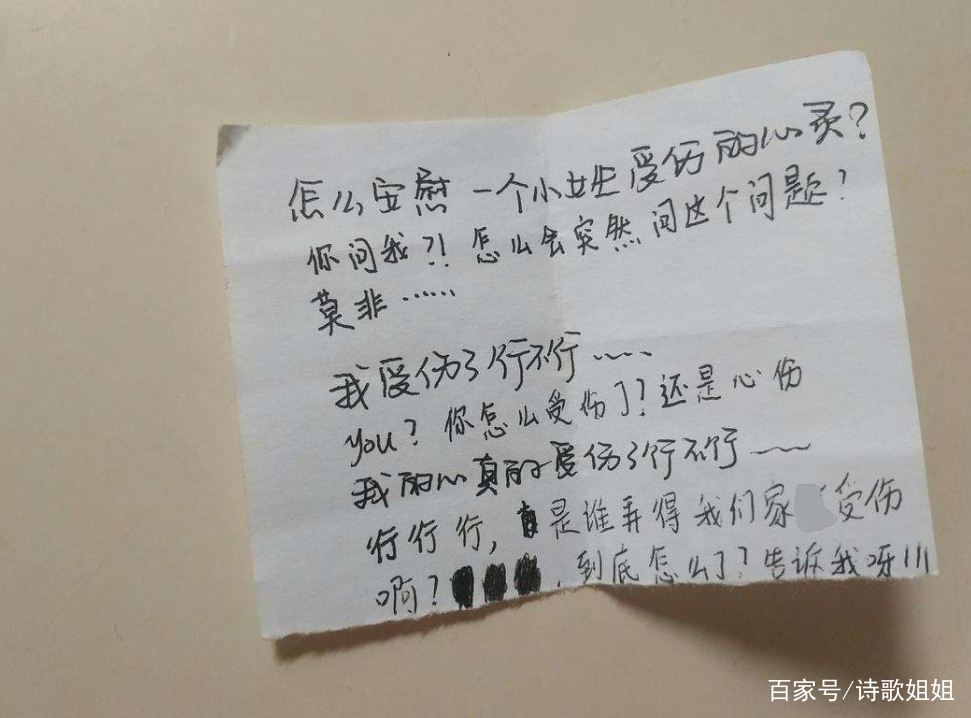 怎么安慰一个小女生受伤的心灵？
你问我?! 怎么会突然问这个问题？
莫非……
我受伤了行不行……
you？你怎么受伤了？还是心伤
我的心真的受伤了行不行……
行行行，是谁弄得我们家受伤
啊？，到底怎么了？告诉我呀!!!
百家号/诗歌姐姐